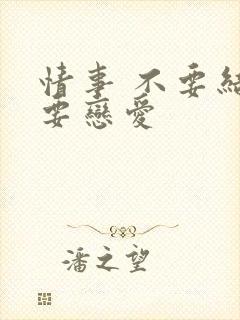 情事 不要結
要戀愛
潘之望